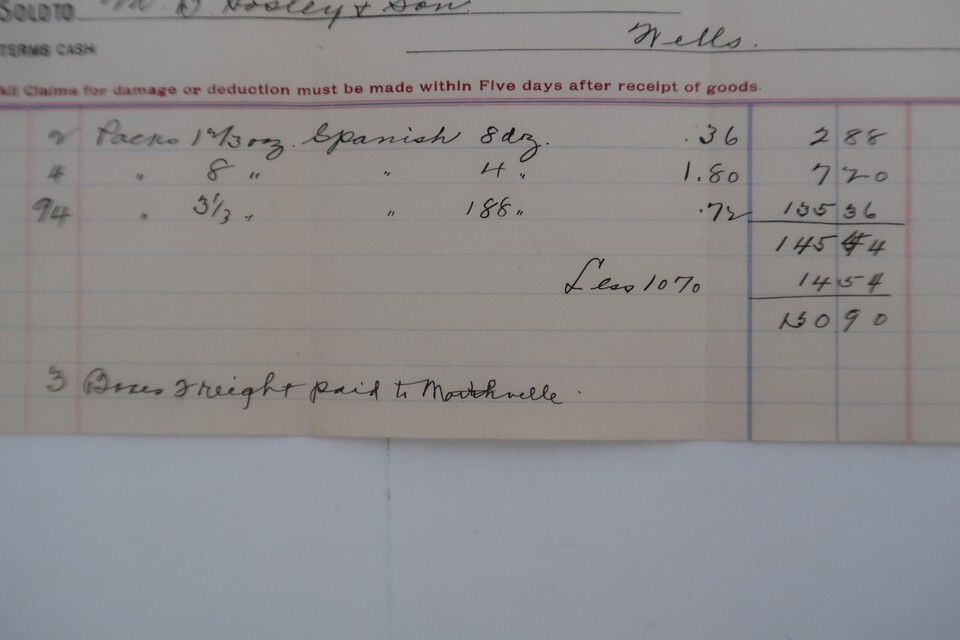 SOLD TO D. Hosley & Son
TERMS CASH Wells.
All Claims for damage or deduction must be made within Five days after receipt of goods.
2 Packs 1 2/3 oz. Spanish 8 dz. .36 2 88
4 " 8 " " 4 " 1.80 7 20
94 " 3 1/3 " " 188 " .72 135 36
145 44
Less 10% 14 54
130 90
3 Boxes Freight paid to